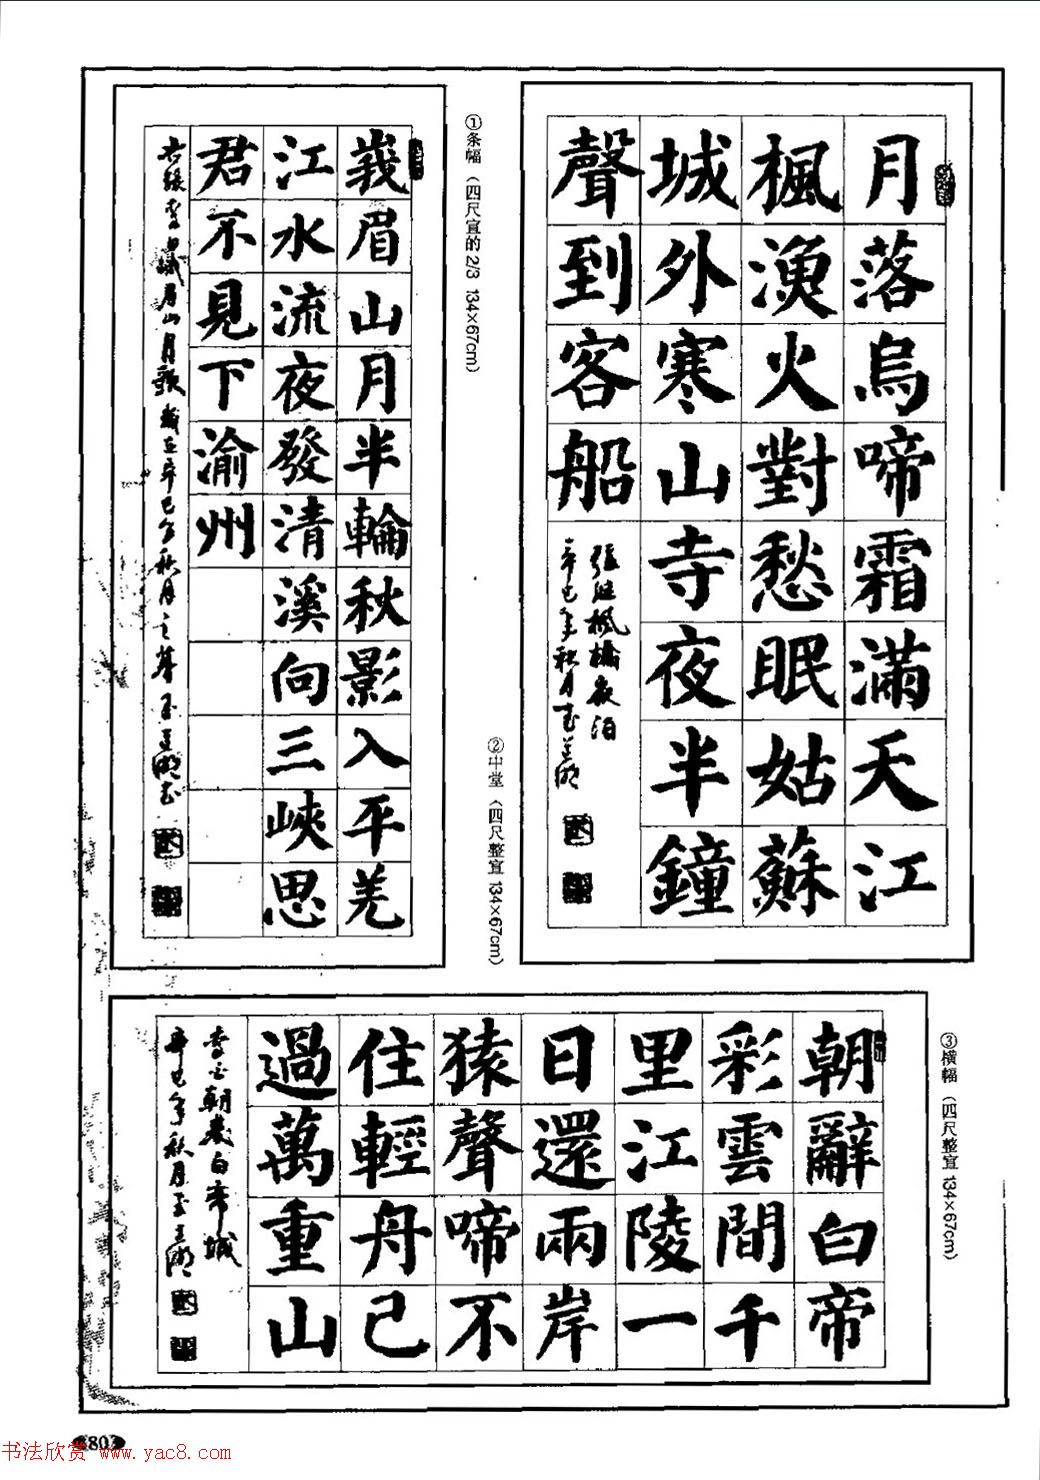 ①条幅（四尺宣的2/3 134×67cm）
峩眉山月半輪秋影入平羌
江水流夜發清溪向三峽思
君不見下渝州
②中堂（四尺整宣 134×67cm）
月落烏啼霜滿天江
楓漁火對愁眠姑蘇
城外寒山寺夜半鐘
聲到客船
張继楓橋夜泊
辛巳年秋月
③横幅（四尺整宣 134×67cm）
朝辭白帝
彩雲間千
里江陵一
日還兩岸
猿聲啼不
住輕舟已
過萬重山
李白朝發白帝城
辛巳年秋月
803
书法欣赏 www.yac8.com